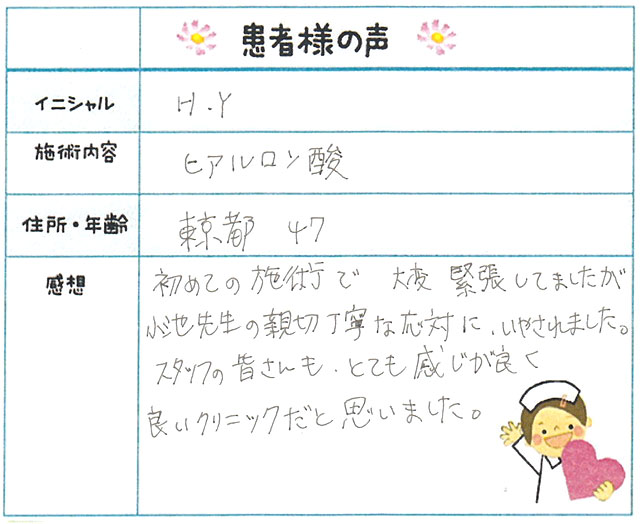 患者様の声
イニシャル H.Y
施術内容 ヒアルロン酸
住所・年齢 東京都 47
感想
初めての施術で 大変 緊張してましたが
小池先生の親切丁寧な応対に、いやされました。
スタッフの皆さんも、とても感じが良く
良いクリニックだと思いました。